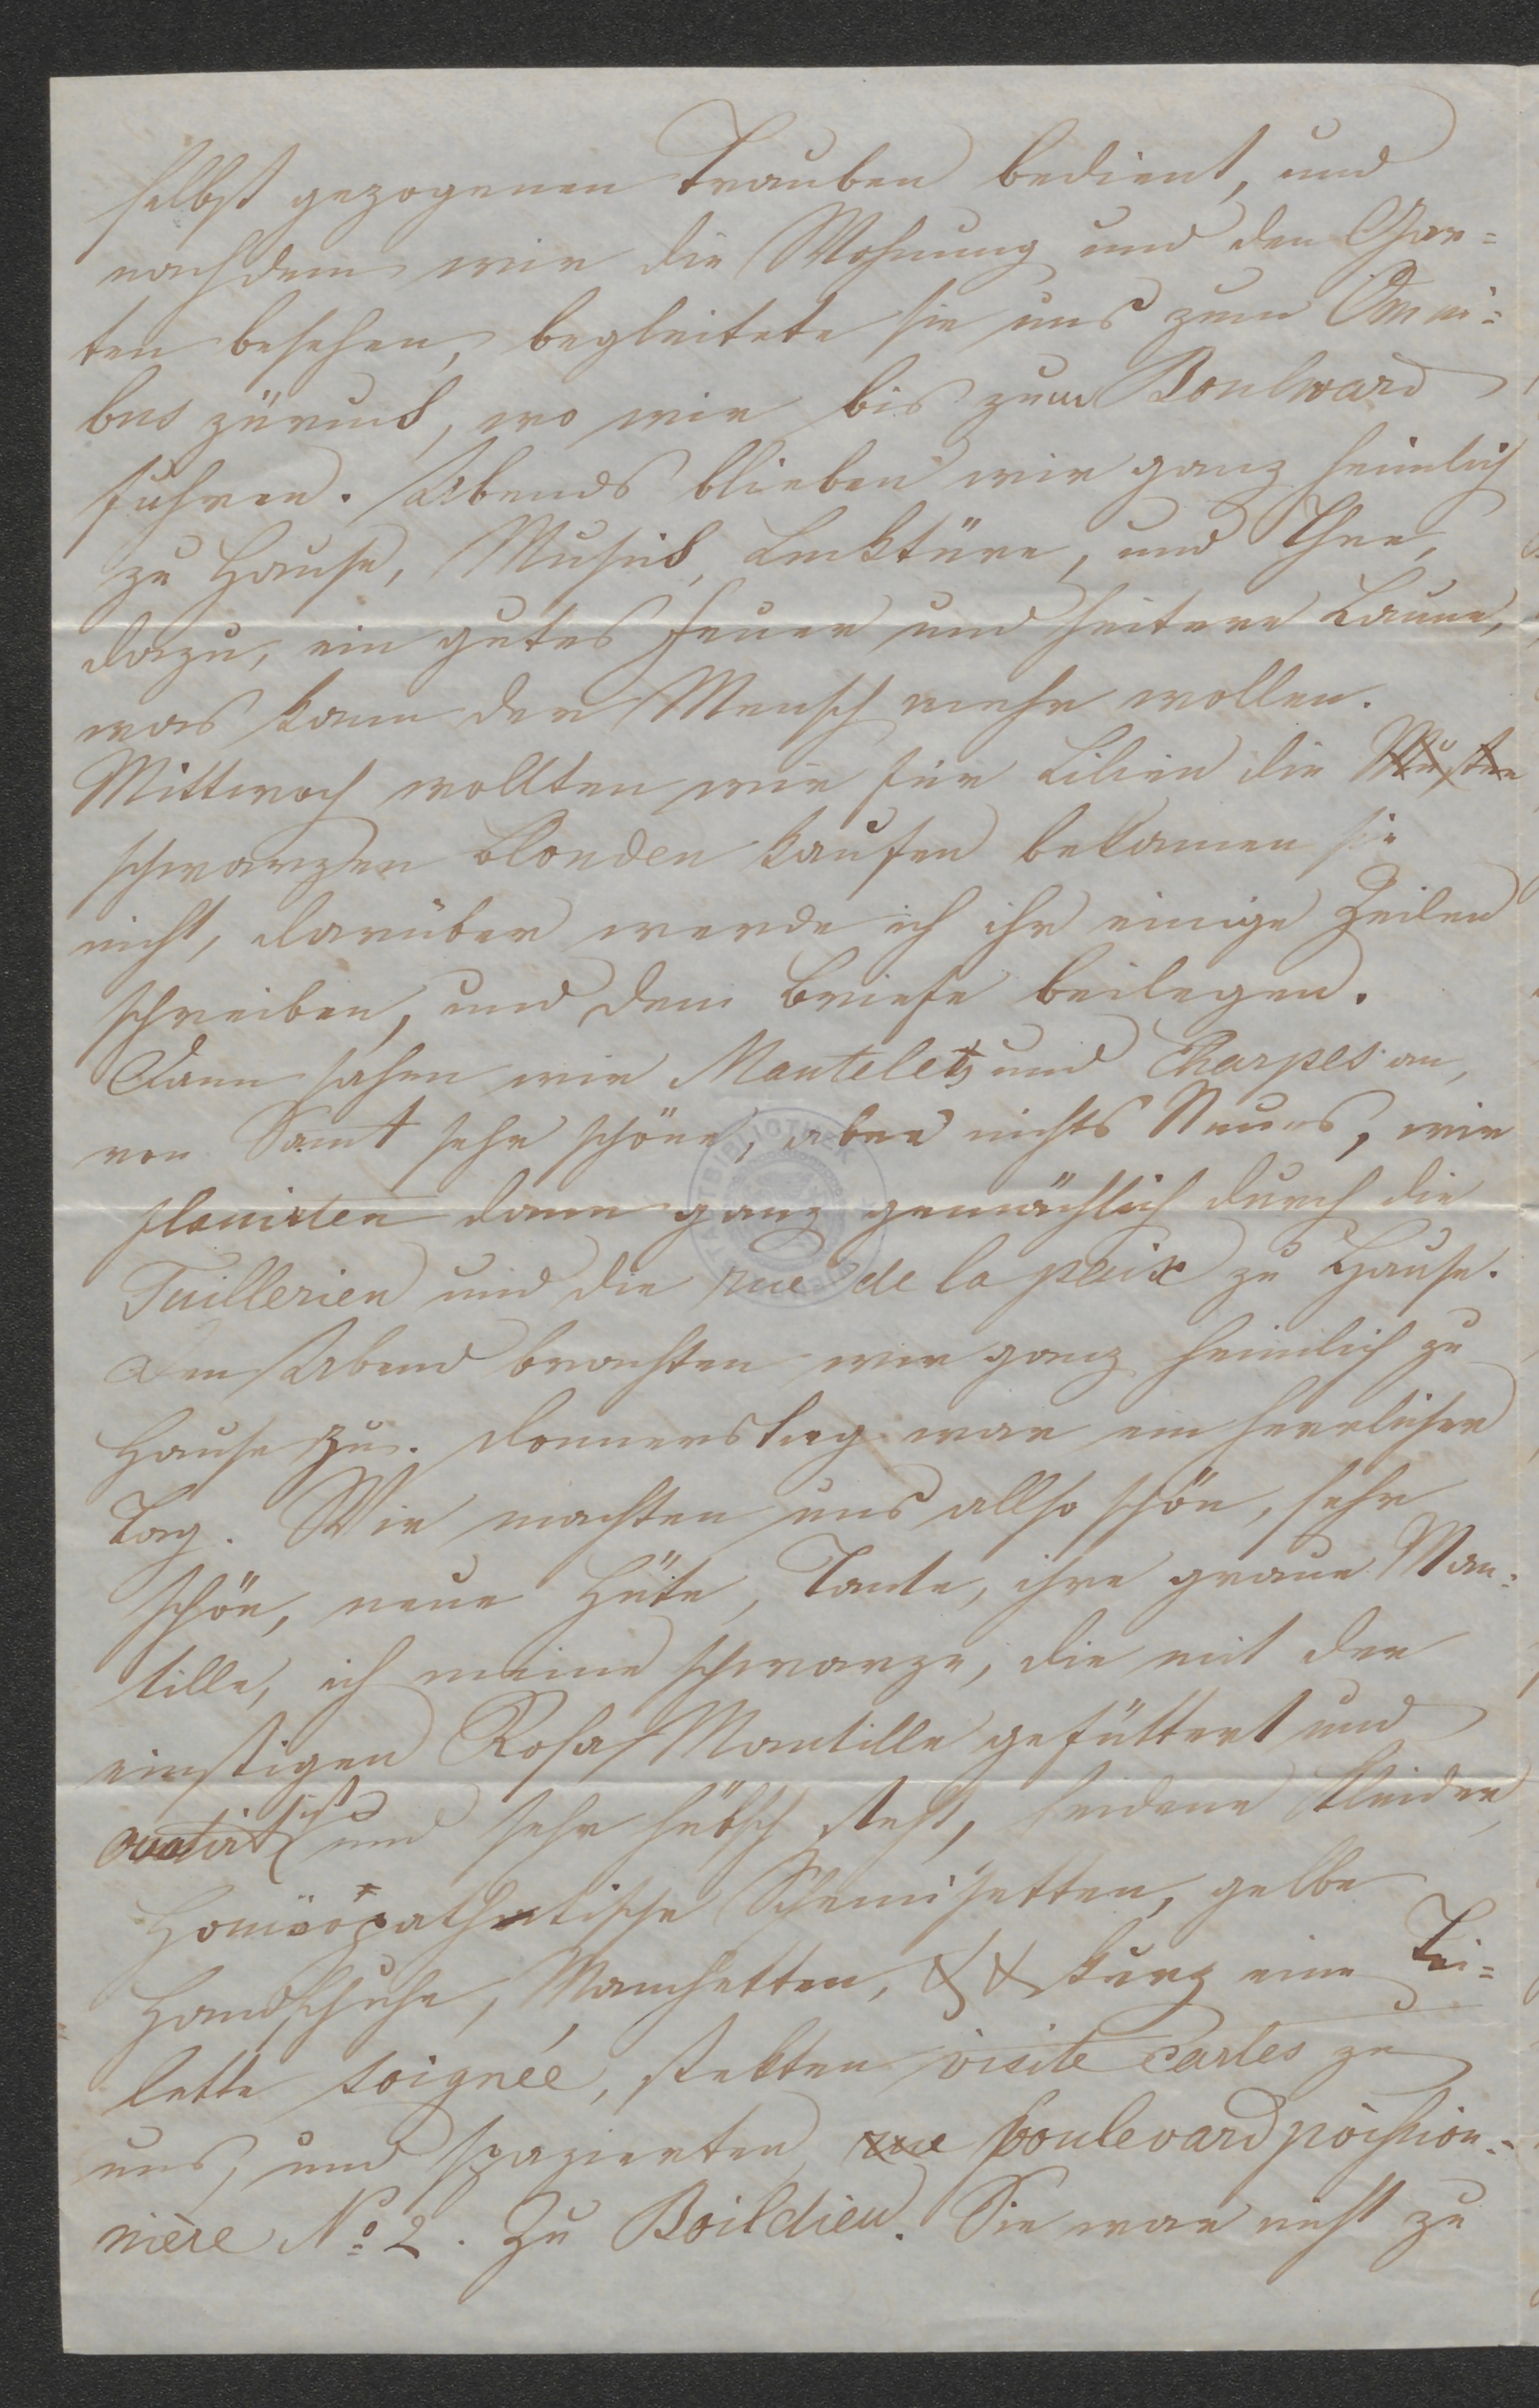 selbst gezogenen Trauben bedient, und
nachdem wir die Wohnung und den Gar=
ten besehen, begleitete sie uns zum Omni=
bus zürück, wo wir bis zum Boulward
fuhren. Abends blieben wir ganz heimlich
zu Hause, Musik, Lecktüre, und Thee,
dazu, ein gutes Feuer und heitere Laune,
was kann der Mensch mehr wollen.
Mittwoch wollten wir für Lilien die Muster
schwarzen Blonden kaufen bekamen sie
nicht, darüber werde ich ihr einige Zeilen
schreiben, und dem Briefe beilegen.
Dann sahen wir Mantelets und Charpes an,
von Samt sehr schöne, aber nichts Neues, wir
flanirten dann ganz gemächlich durch die
Tuillerien und die rue de la paix zu Hause.
Den Abend brachten wir ganz heimlich zu
Hause zu. Donnerstag war ein herrlicher
Tag. Wir machten uns allso schön, sehr
schön, neue Hüte, Tante, ihre graue Man=
tille, ich meine schwarze, die mit der
einstigen Rosa Mantille gefüttert und
ovatirt ist und sehr hübsch steht, seidene Kleider,
Homöopathatische Schemisetten, gelbe
Handschuhe, Manschetten, && kurz eine Toi=
lette soignée, stekten visite cartes zu
uns, und spazierten rue boulevard poission=
nière No 2. Zu Boildieu. Sie war nicht zu
STADTBIBLIOTHEK